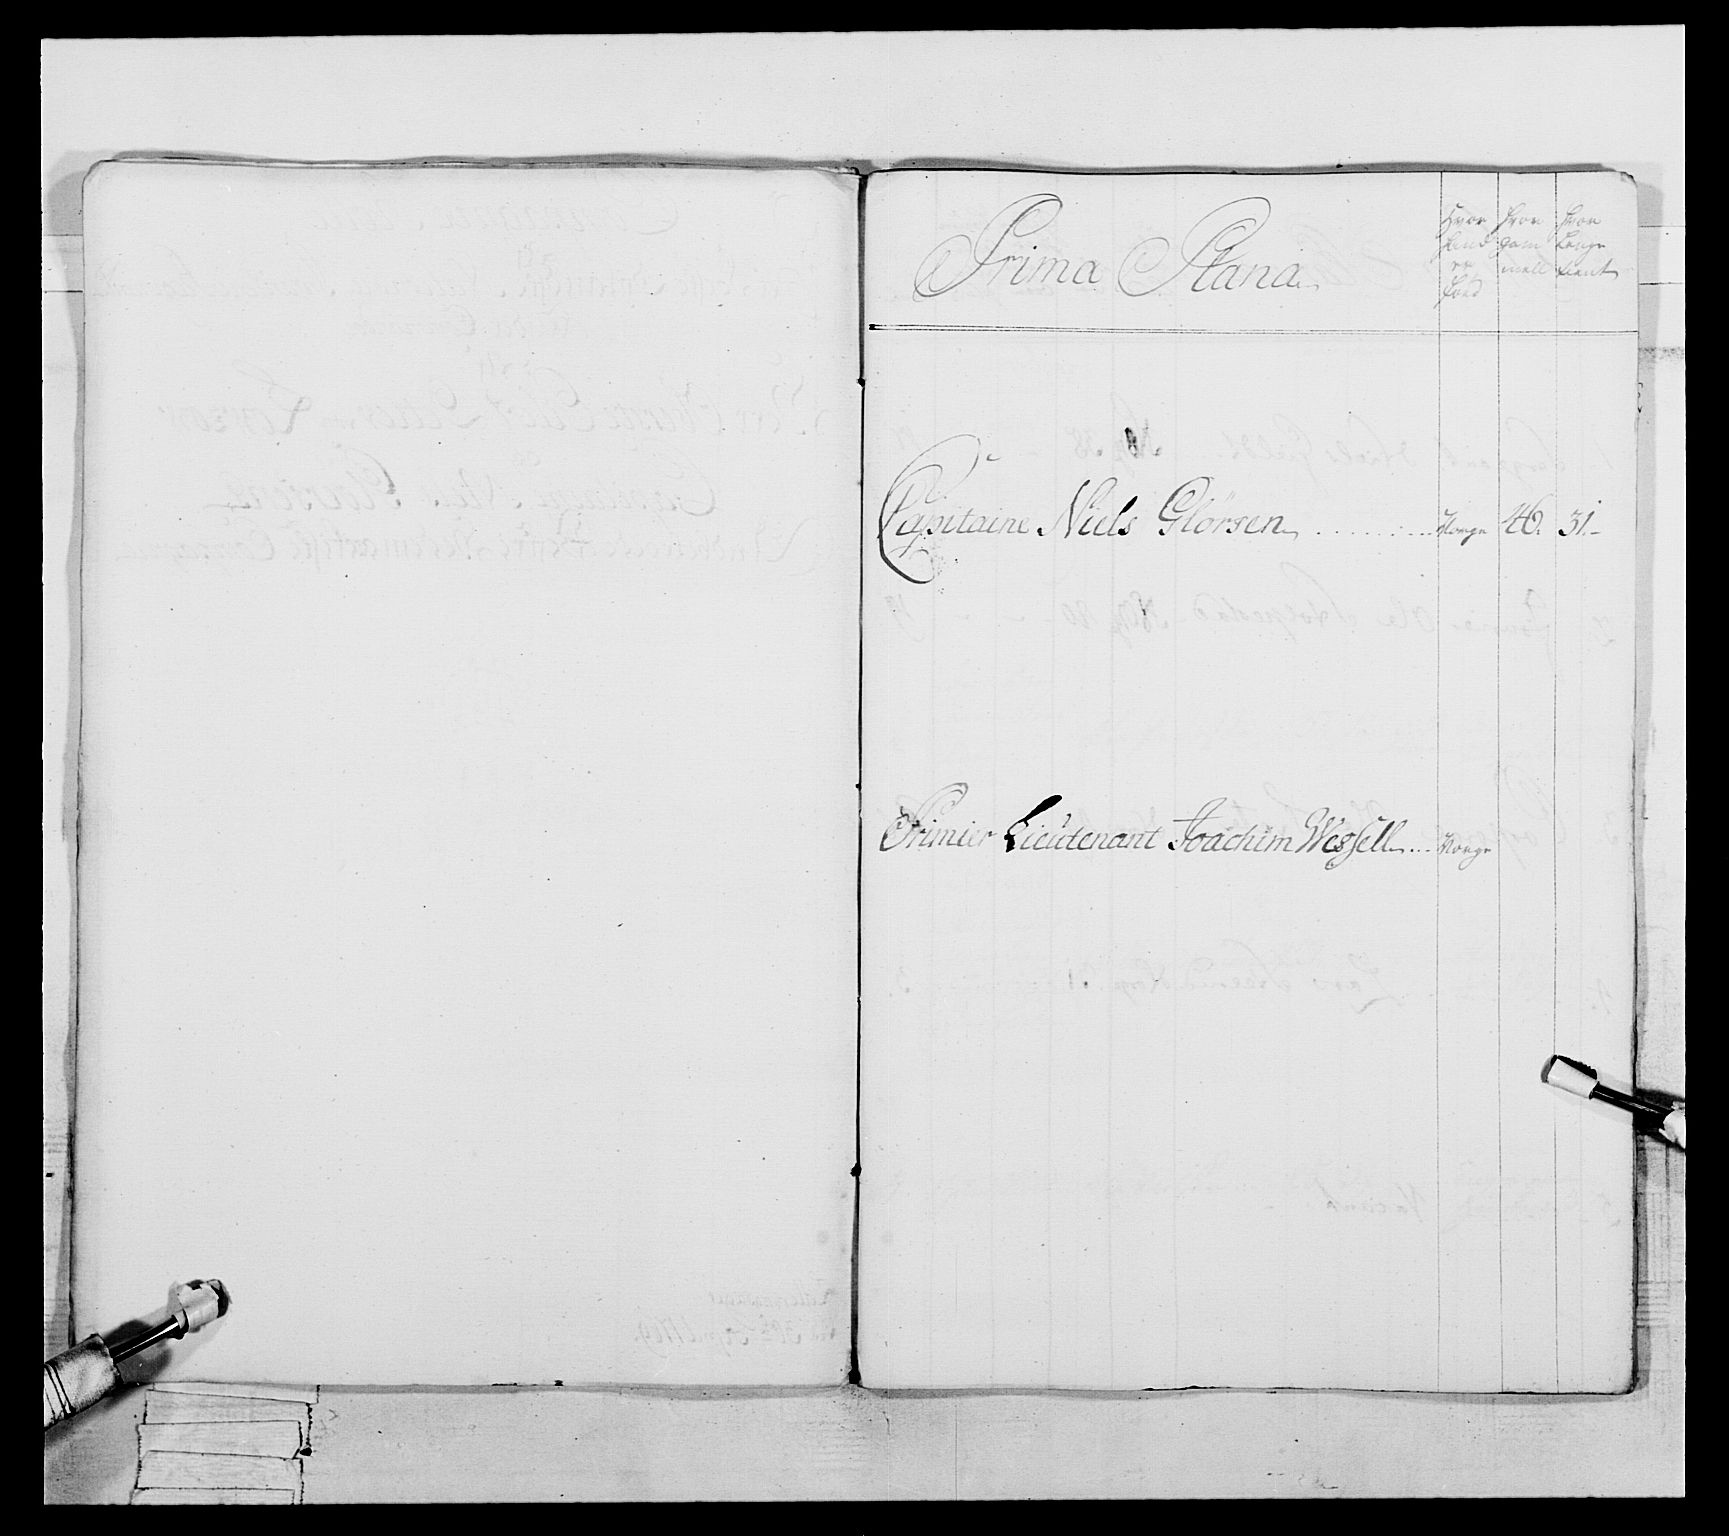 Prima Plana
Hvor Land er Föed
hvor gam mell
hvor lenge tient
Capitaine Niels Glörsen Norge 46. 31.
Primier Lieutenant Joachim Wessell Norge